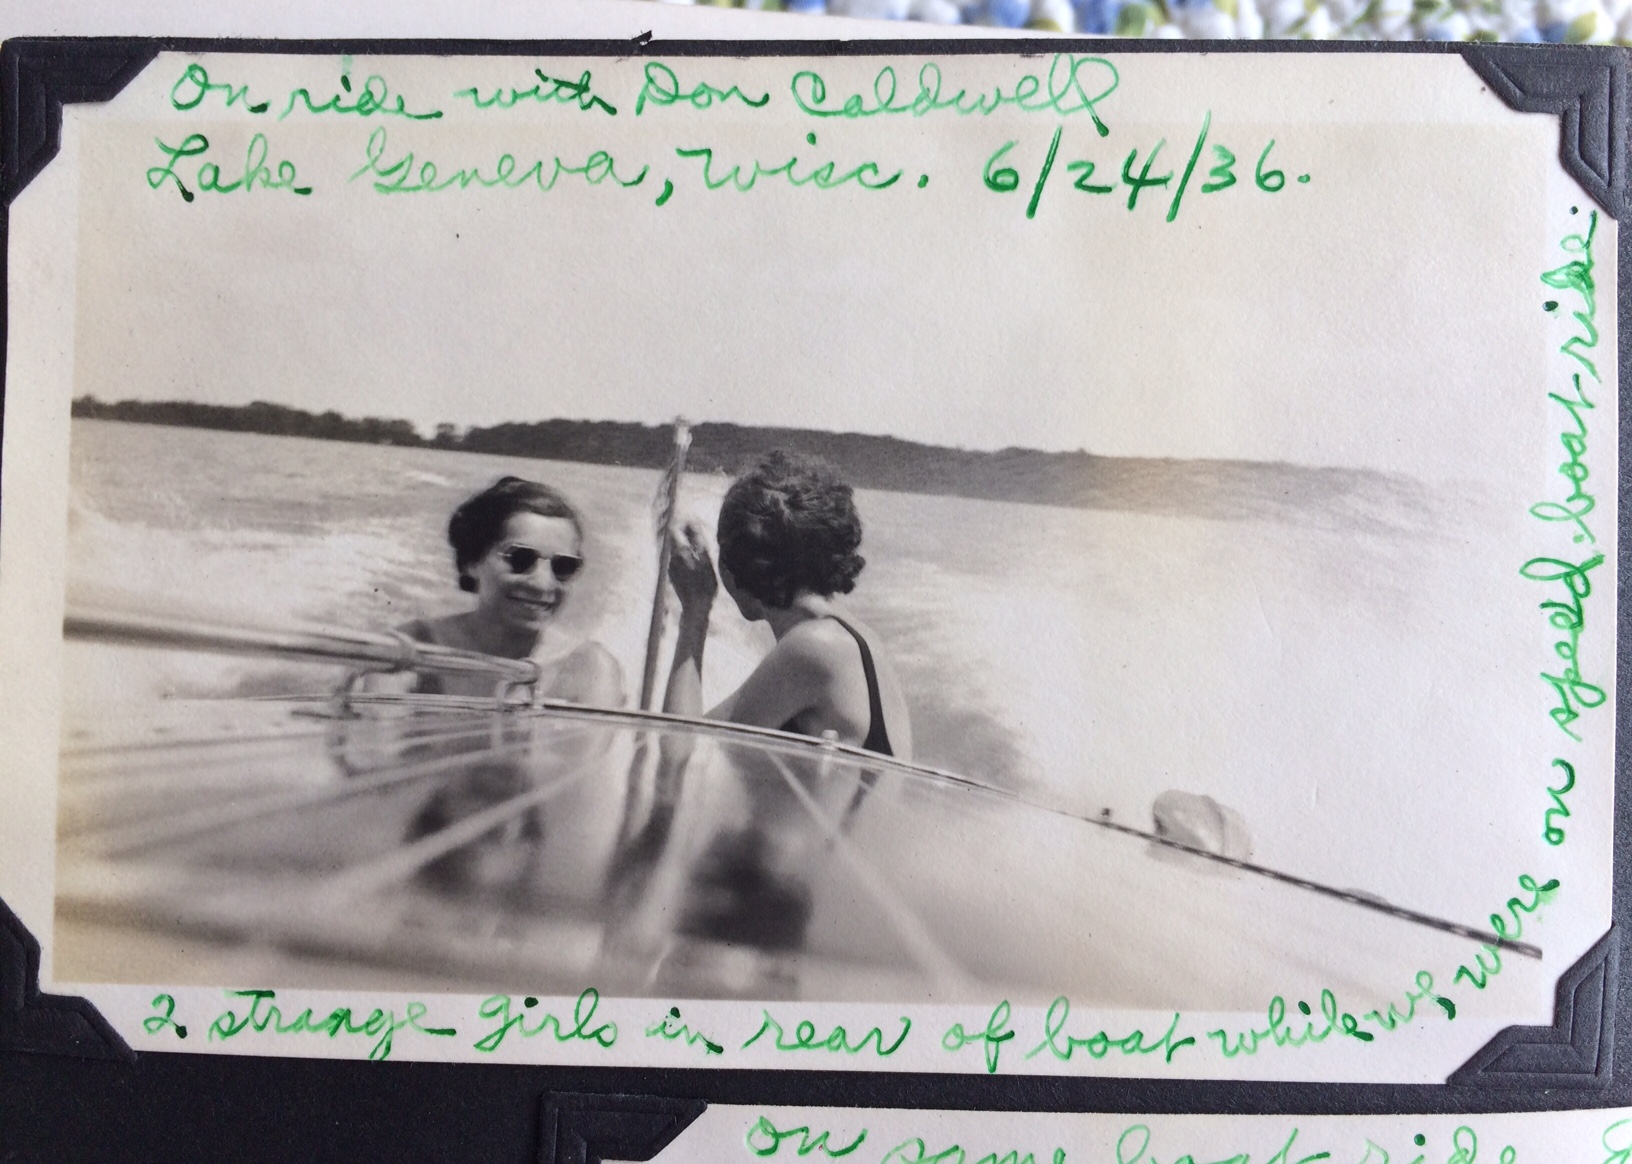 On ride with Don Caldwell
Lake Geneva, Wisc. 6/24/36.
2 strange girls in rear of boat while we, were on speed-boat-ride.
on same boat ride